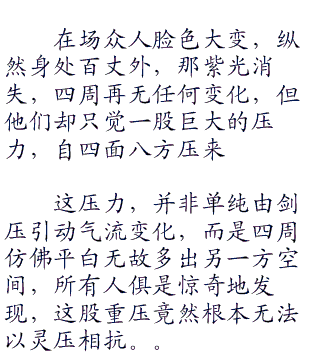 在场众人脸色大变，纵
然身处百丈外，那紫光消
失，四周再无任何变化，但
他们却只觉一股巨大的压
力，自四面八方压来
这压力，并非单纯由剑
压引动气流变化，而是四周
仿佛平白无故多出另一方空
间，所有人俱是惊奇地发
现，这股重压竟然根本无法
以灵压相抗。。